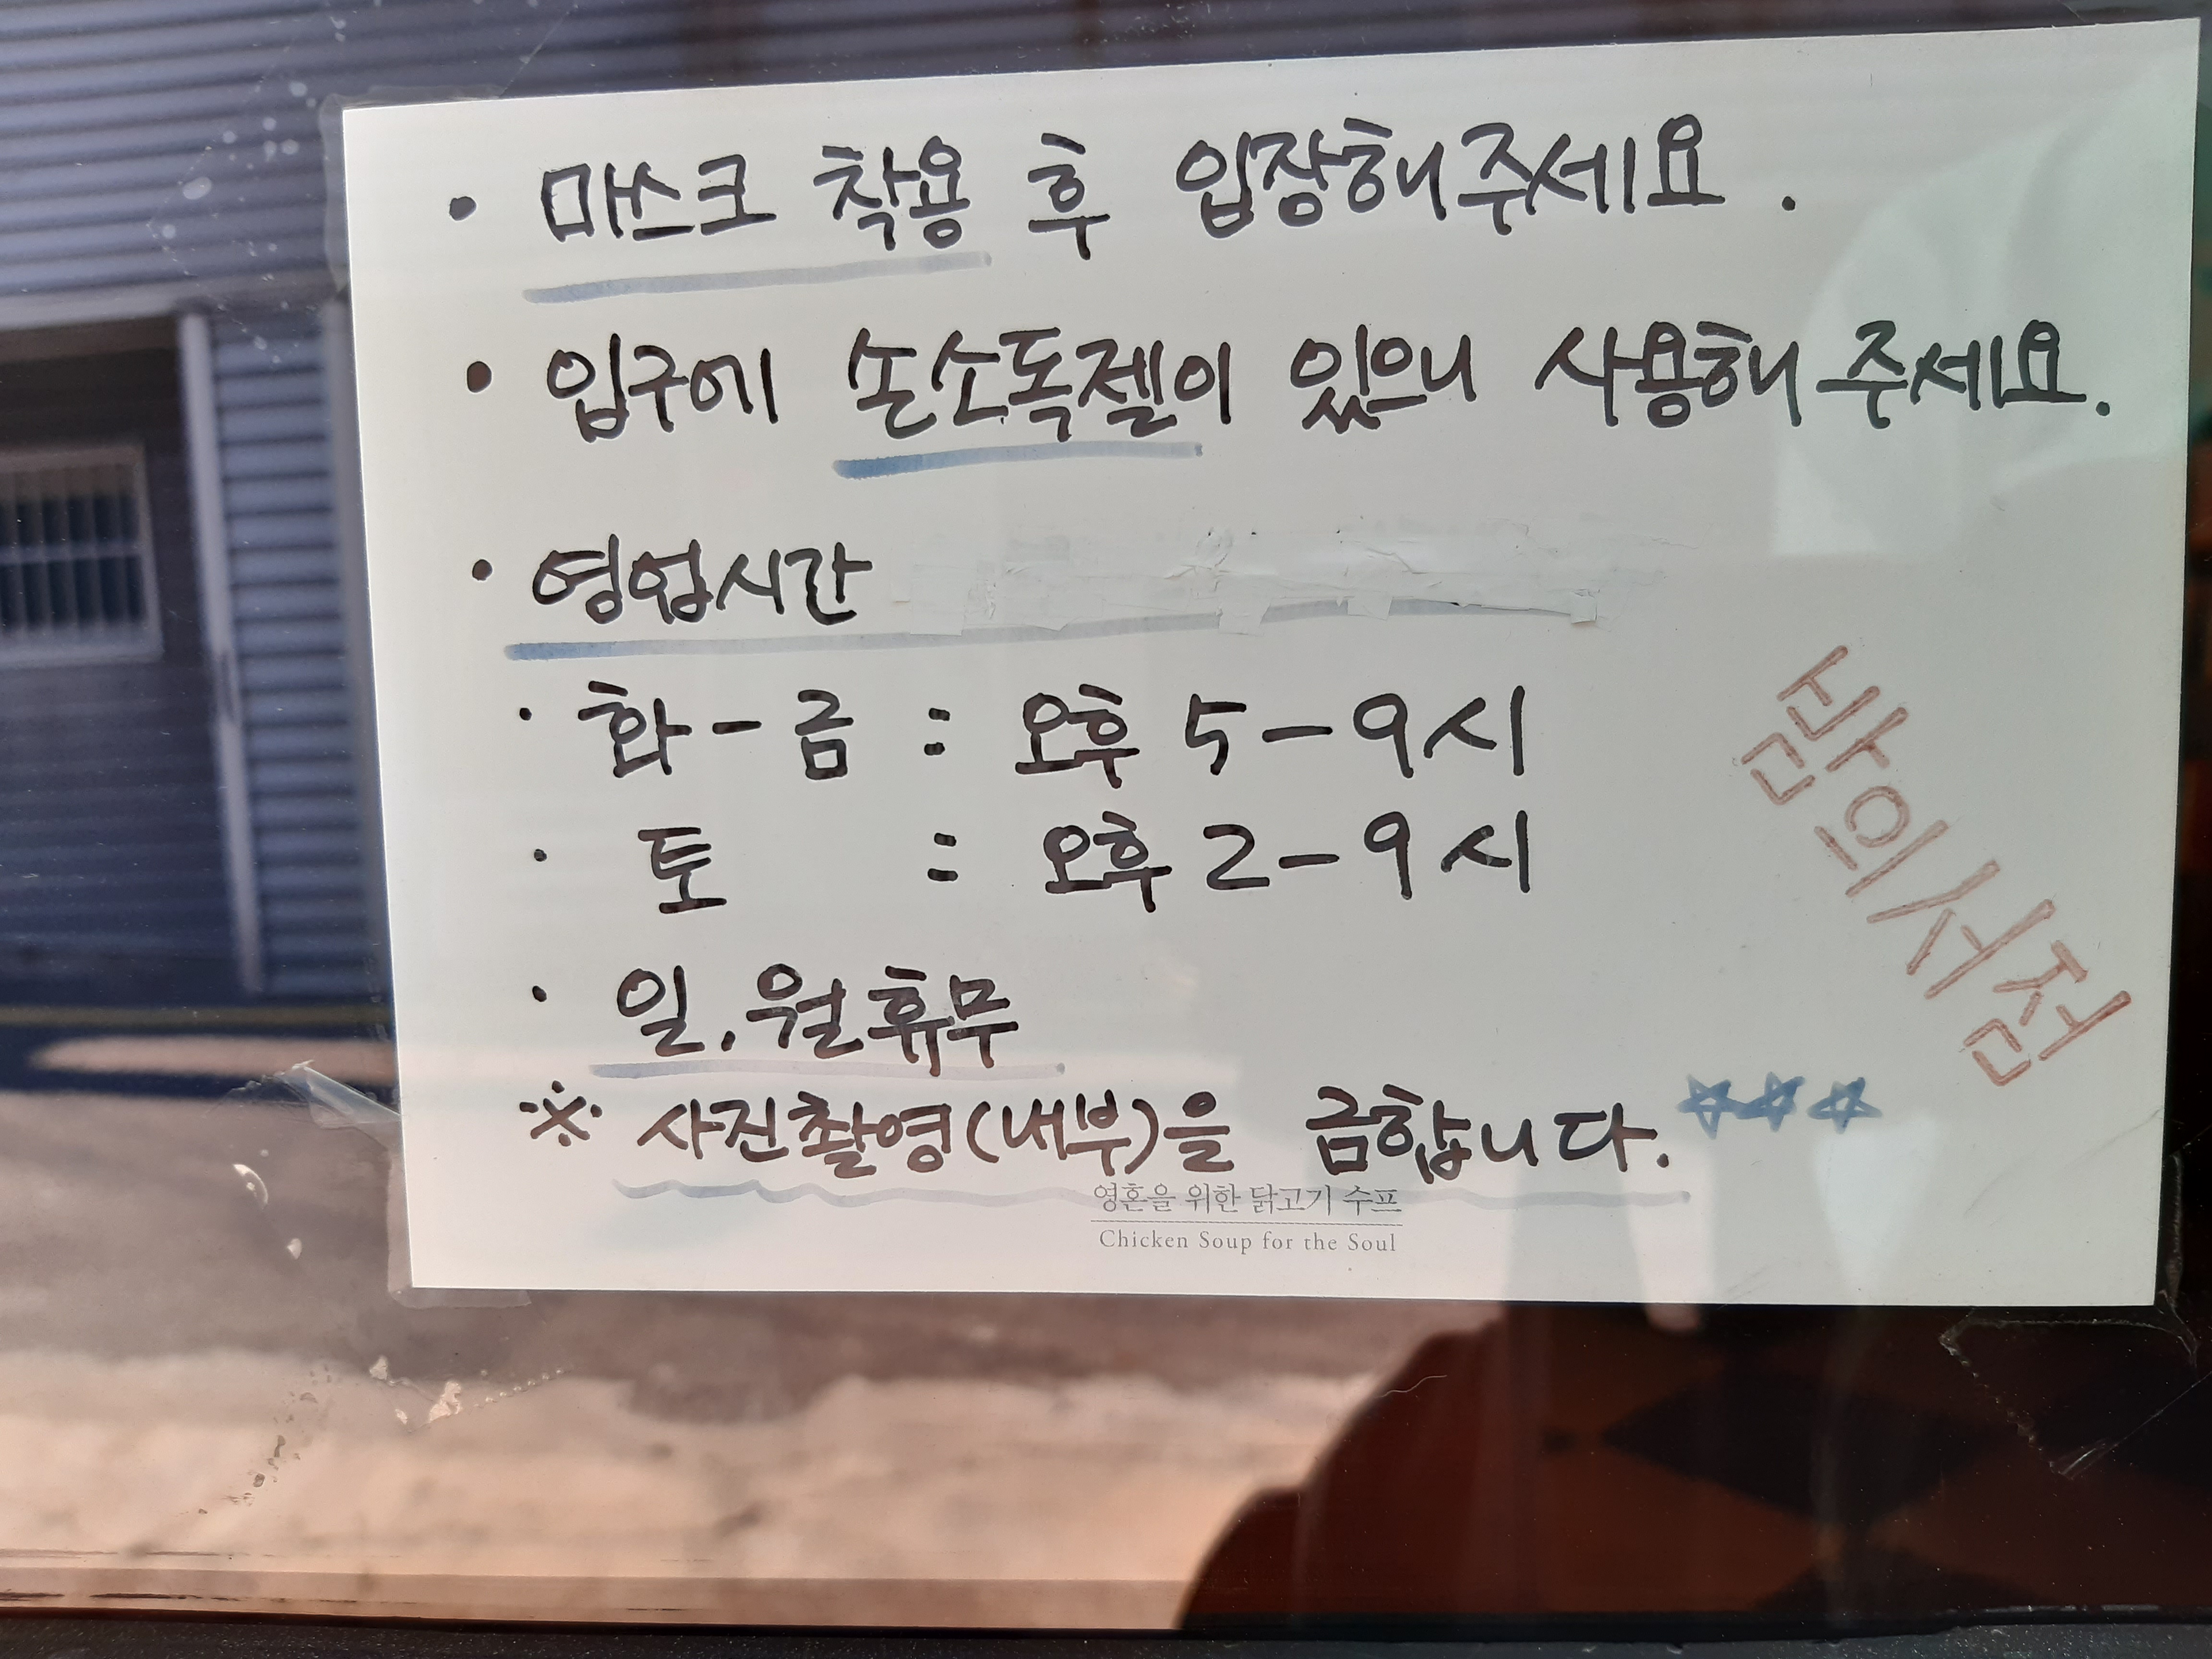 · 마스크 착용 후 입장해주세요.
· 입구에 손소독젤이 있으니 사용해 주세요.
· 영업시간
· 화-금 : 오후 5-9시
· 토 : 오후 2-9시
· 일, 월 휴무
※ 사진촬영(내부)을 금합니다. ☆☆☆
밤의서점
영혼을 위한 닭고기 수프
Chicken Soup for the Soul